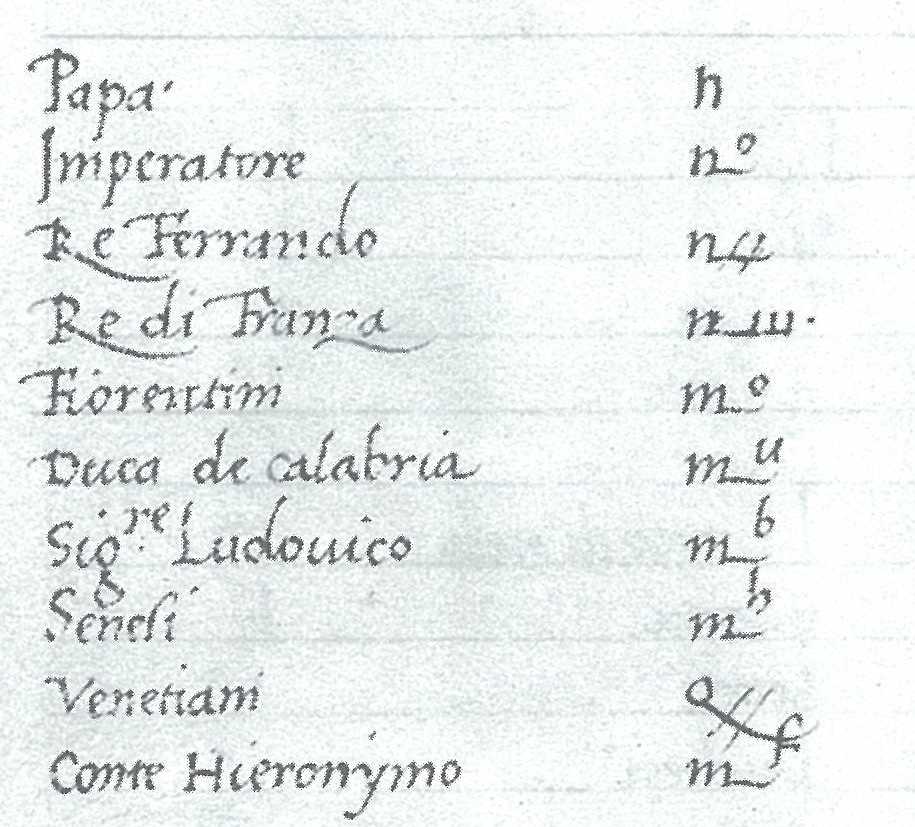 Papa n
Imperatore n o
Re Ferrando n
Re di Franza n
Fiorentini m o
Duca de calabria m u
Sig.re Ludovico m b
Senesi m h
Venetiani
Conte Hieronymo m f